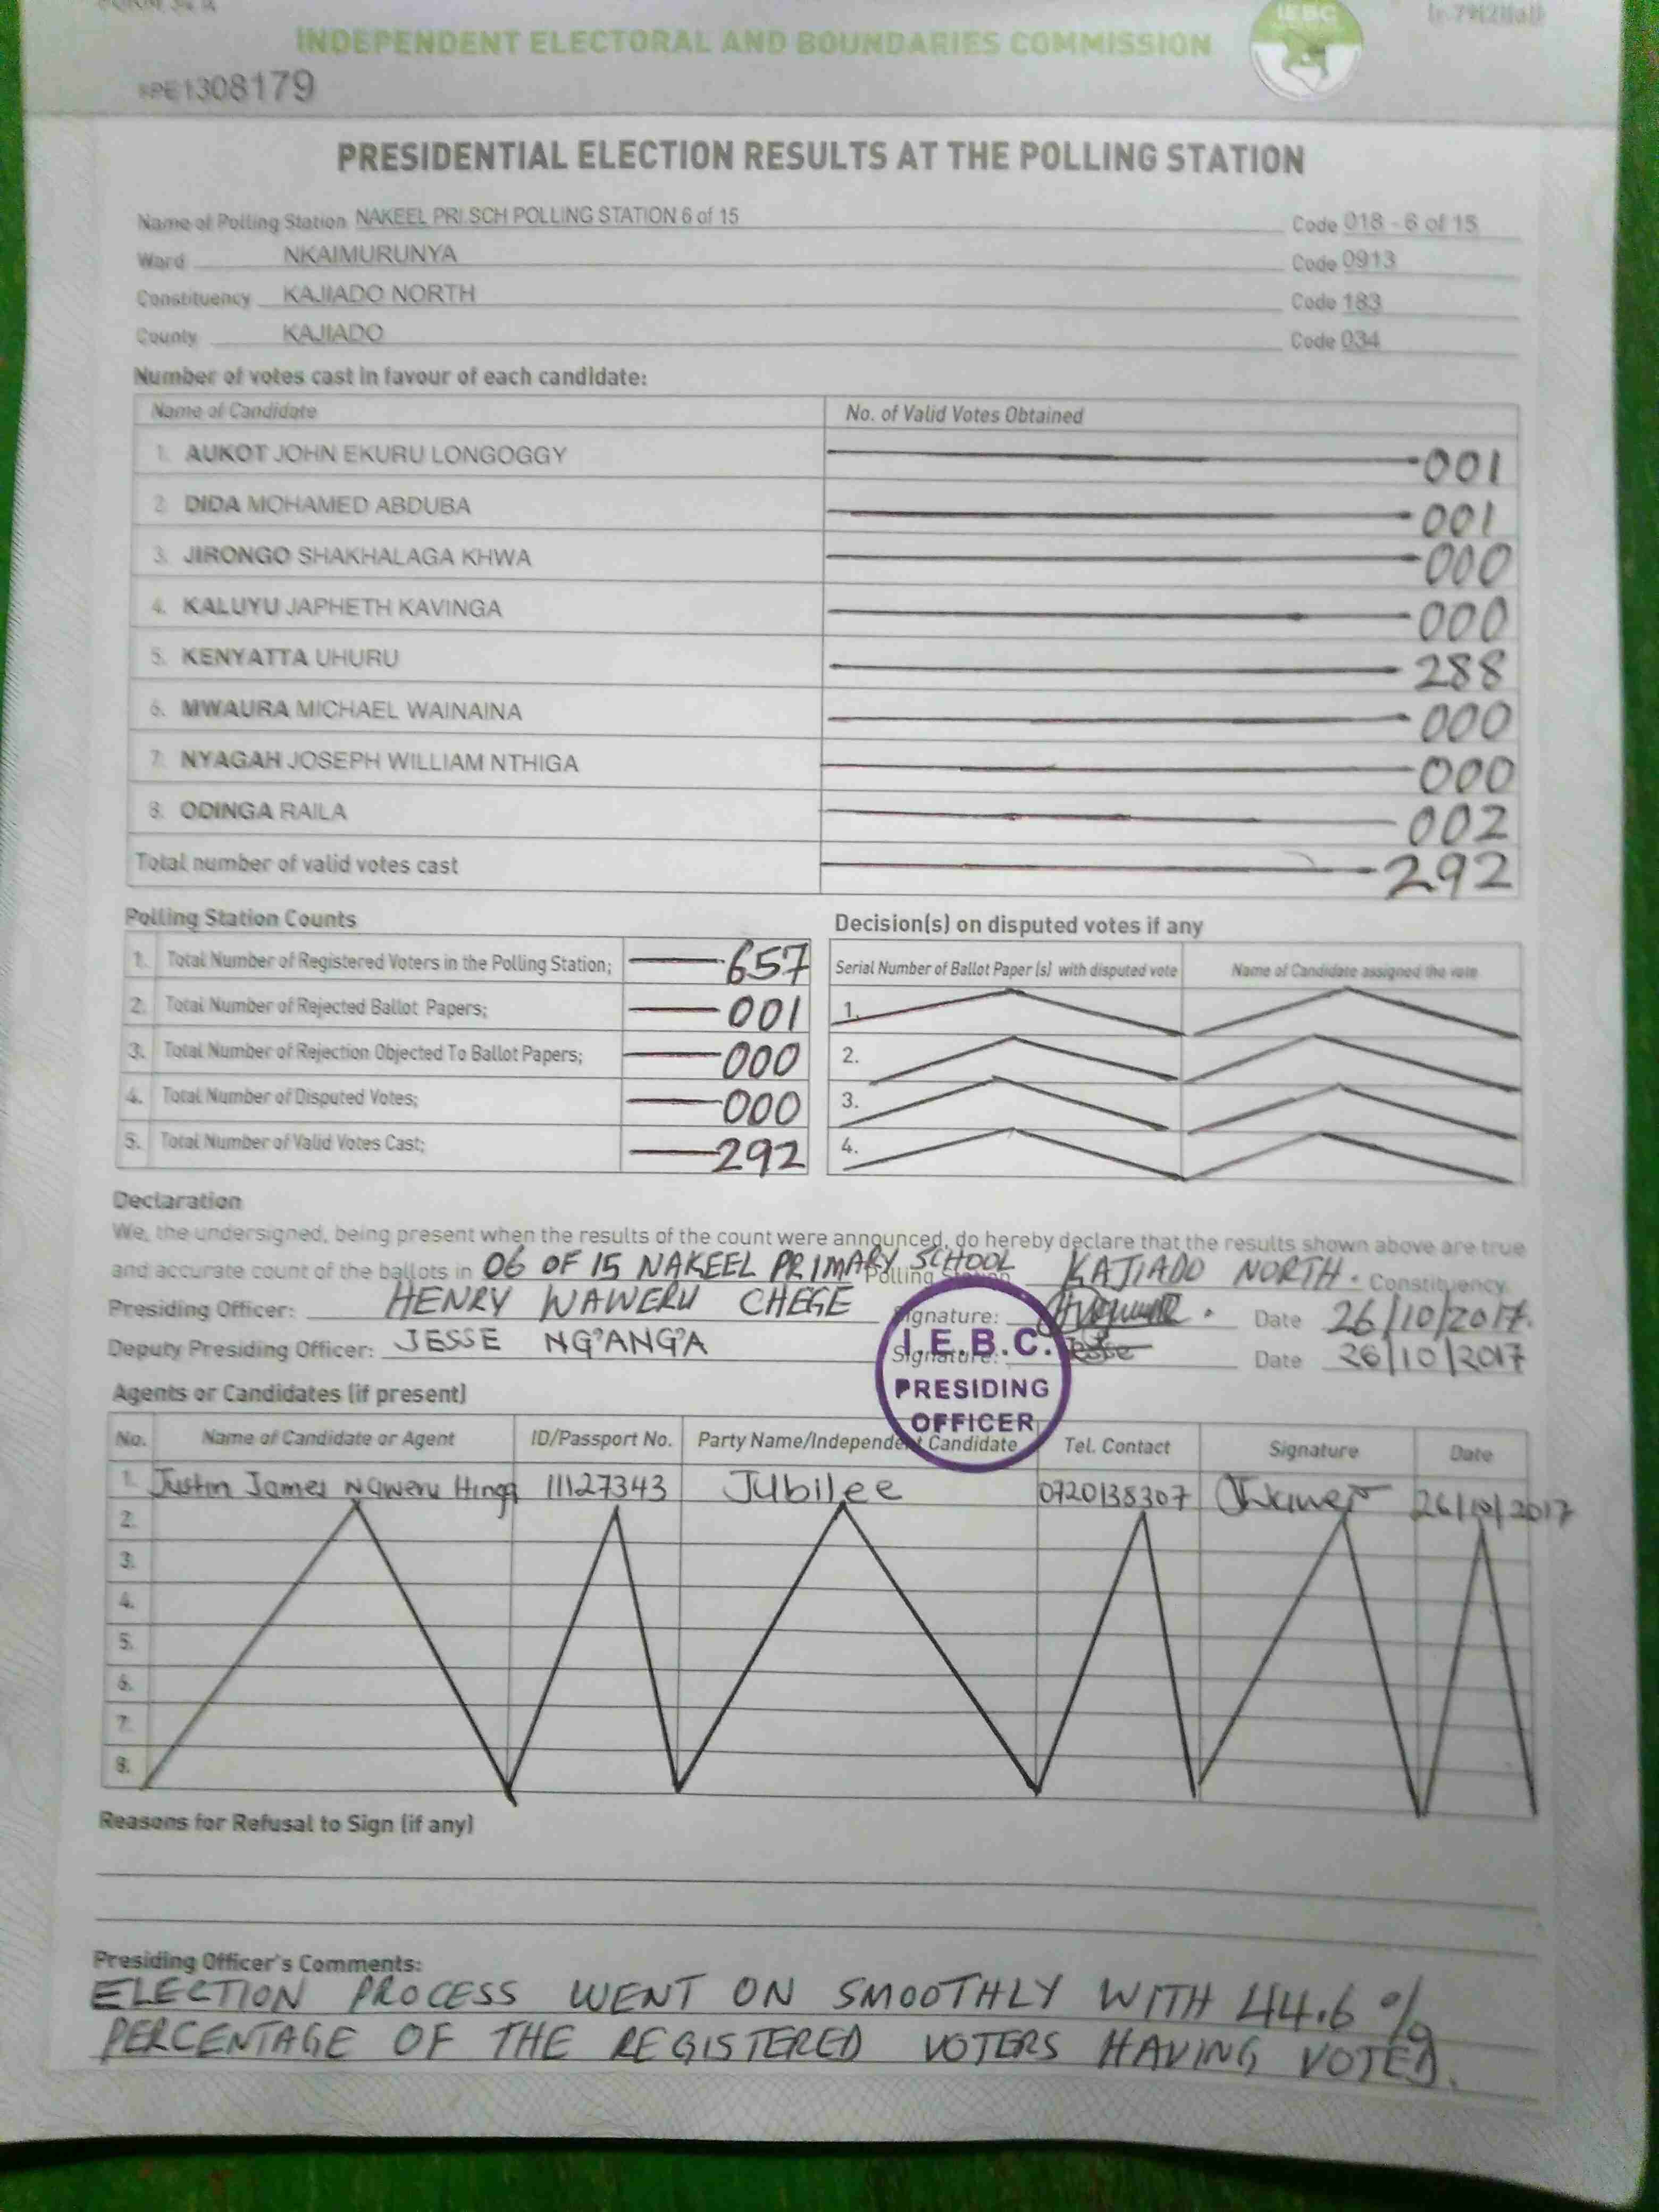 FORM 34 A
INDEPENDENT ELECTORAL AND BOUNDARIES COMMISSION
IEBC
PE1308179
PRESIDENTIAL ELECTION RESULTS AT THE POLLING STATION
Name of Polling Station NAKEEL PRI.SCH POLLING STATION 6 of 15 Code 018 - 6 of 15
Ward NKAIMURUNYA Code 0913
Constituency KAJIADO NORTH Code 183
County KAJIADO Code 034
Number of votes cast in favour of each candidate:
Name of Candidate No. of Valid Votes Obtained
1. AUKOT JOHN EKURU LONGOGGY 001
2. DIDA MOHAMED ABDUBA 001
3. JIRONGO SHAKHALAGA KHWA 000
4. KALUYU JAPHETH KAVINGA 000
5. KENYATTA UHURU 288
6. MWAURA MICHAEL WAINAINA 000
7. NYAGAH JOSEPH WILLIAM NTHIGA 000
8. ODINGA RAILA 002
Total number of valid votes cast 292
Polling Station Counts
1. Total Number of Registered Voters in the Polling Station; 657
2. Total Number of Rejected Ballot Papers; 001
3. Total Number of Rejection Objected To Ballot Papers; 000
4. Total Number of Disputed Votes; 000
5. Total Number of Valid Votes Cast; 292
Decision(s) on disputed votes if any
Serial Number of Ballot Paper (s) with disputed vote Name of Candidate assigned the vote
1.
2.
3.
4.
Declaration
We, the undersigned, being present when the results of the count were announced, do hereby declare that the results shown above are true
and accurate count of the ballots in 06 OF 15 NAKEEL PRIMARY SCHOOL Polling Station KAJIADO NORTH. Constituency
Presiding Officer: HENRY WAWERU CHEGE Signature: Date 26/10/2017.
Deputy Presiding Officer: JESSE NG'ANG'A Signature: Jesse Date 26/10/2017
I.E.B.C.
PRESIDING
OFFICER
Agents or Candidates (if present)
No. Name of Candidate or Agent ID/Passport No. Party Name/Independent Candidate Tel. Contact Signature Date
1. Justin James Waweru Hinga 11127343 Jubilee 0720138307 26/10/2017
2.
3.
4.
5.
6.
7.
8.
Reasons for Refusal to Sign (if any)
Presiding Officer's Comments:
ELECTION PROCESS WENT ON SMOOTHLY WITH 44.6 %
PERCENTAGE OF THE REGISTERED VOTERS HAVING VOTED.